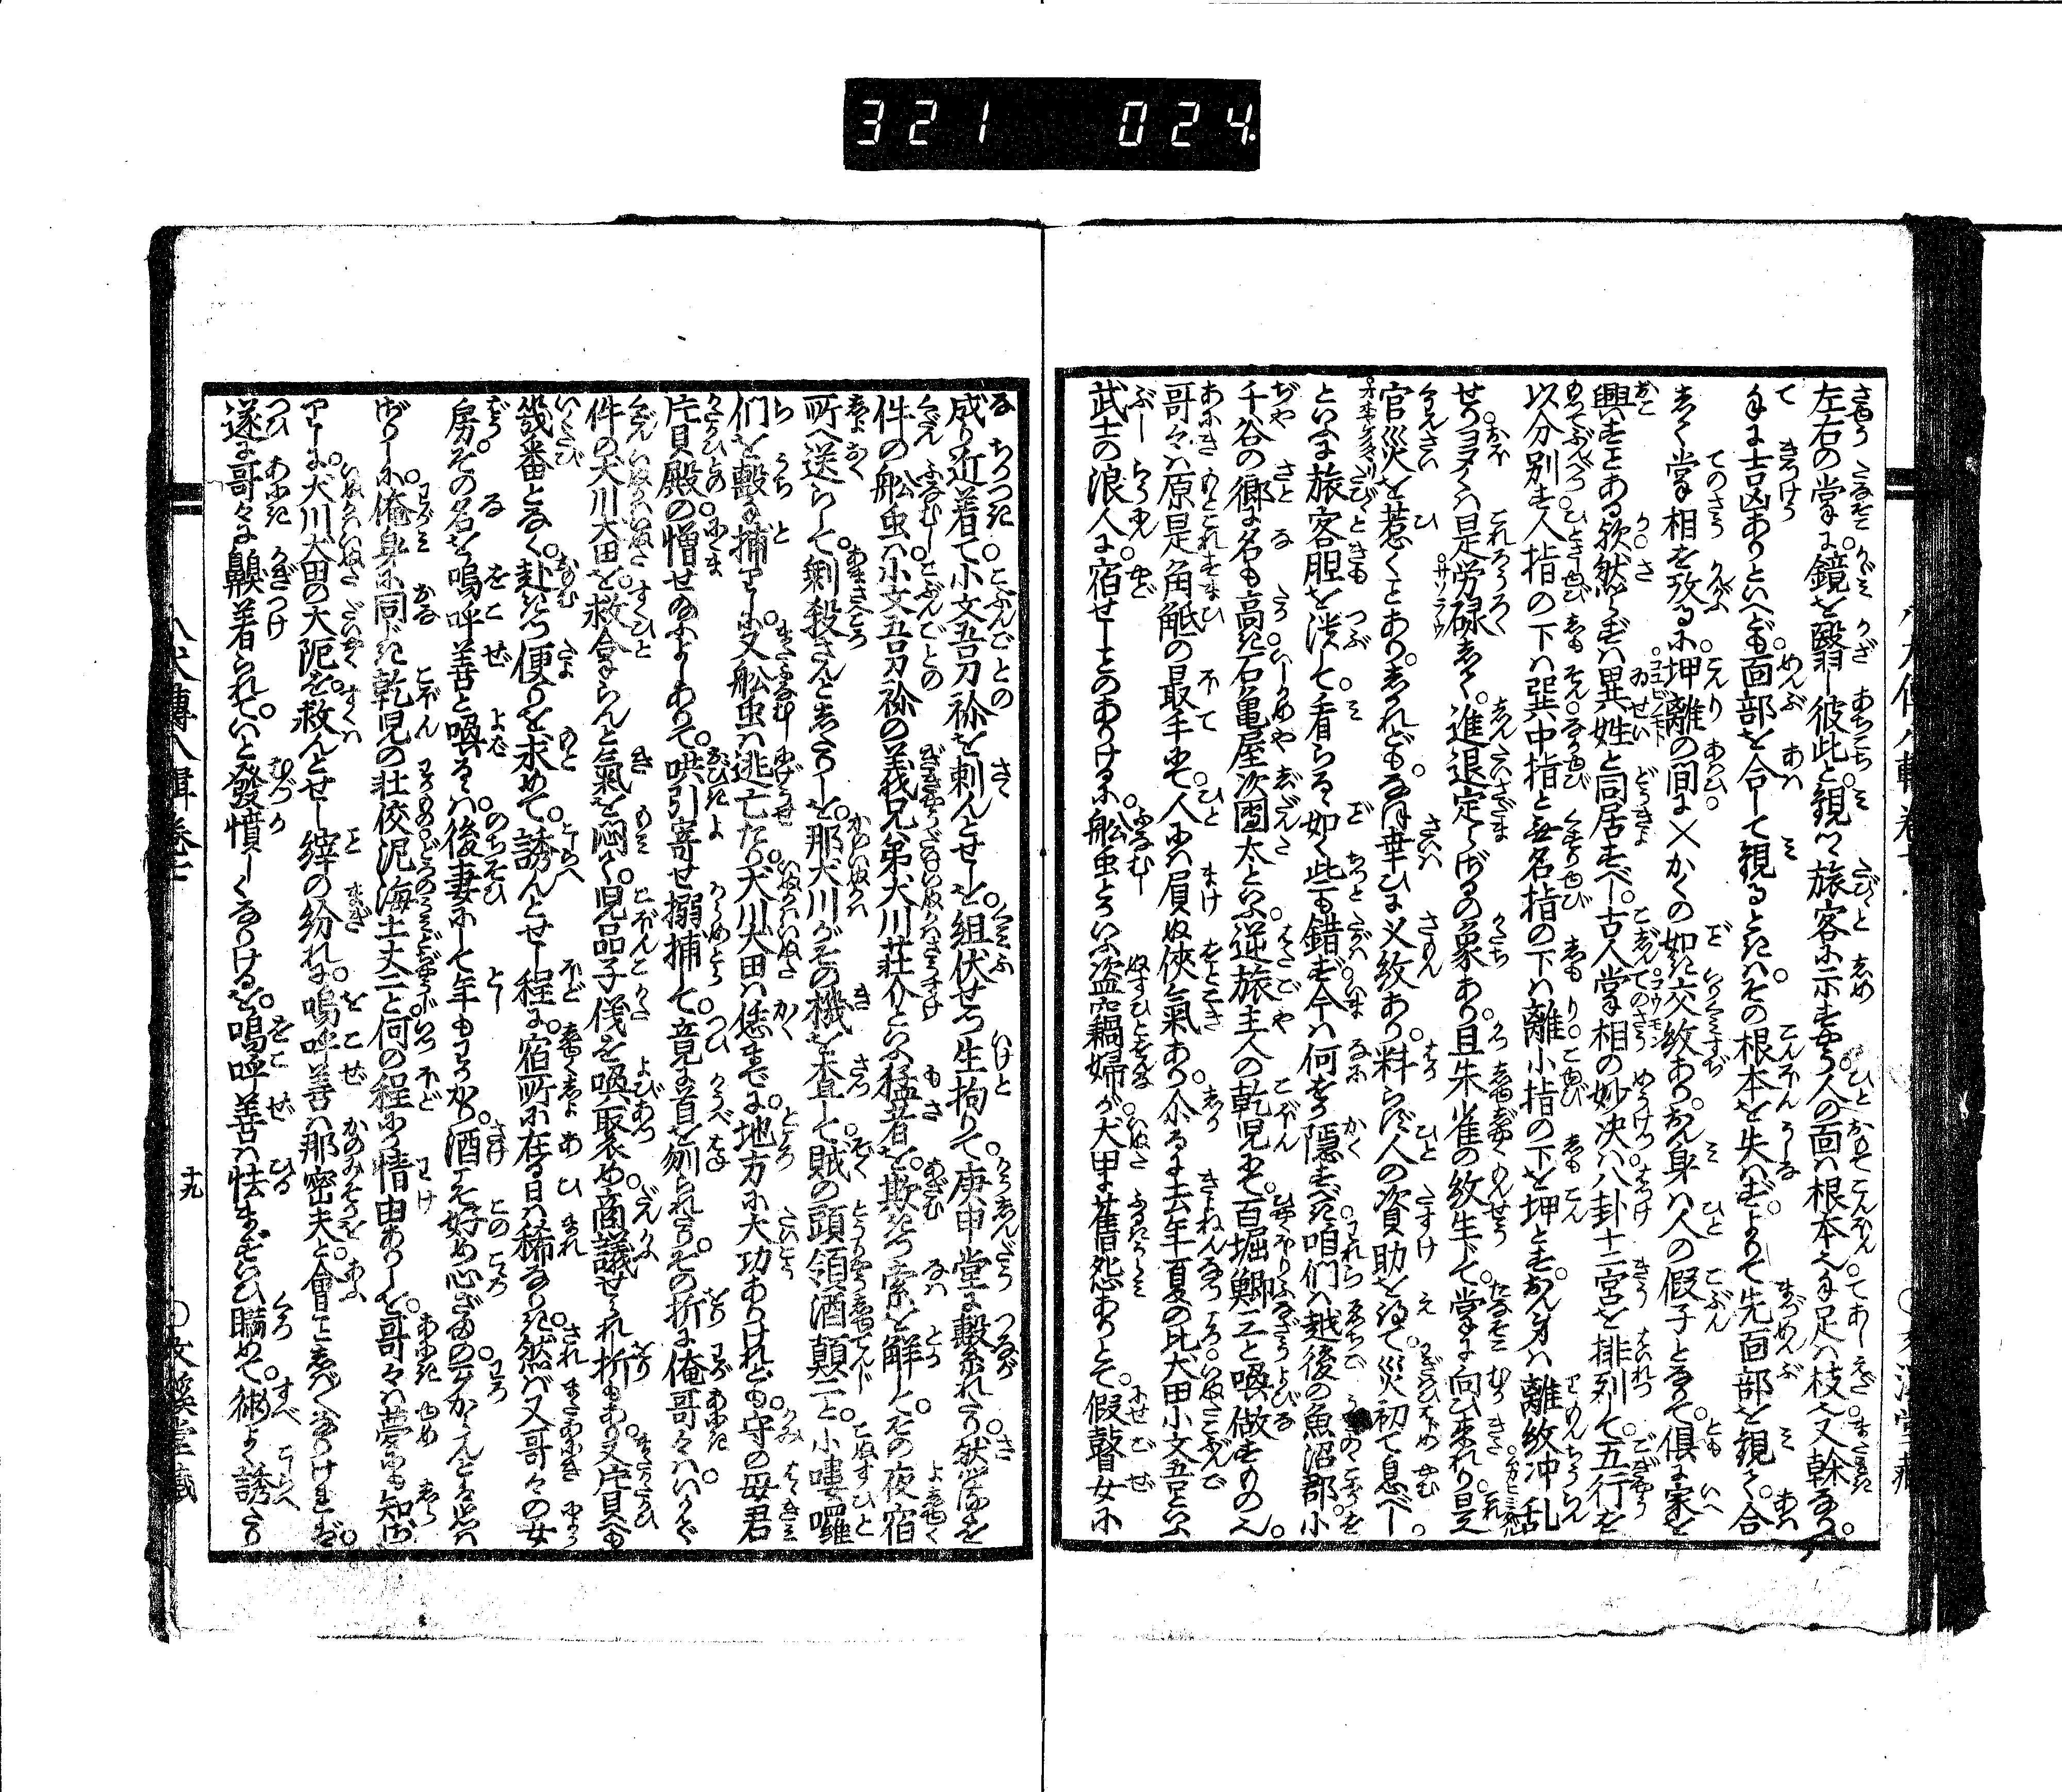 321 024
左右の掌に鏡を翳し彼此と観つ旅客に示すやう人の面は根本也手足は枝也又幹なり
手に吉凶ありといへども面部を合して観るときはその根本を失はずよりて先面部を観て合
しく掌相を攷るに坤離の間に㐅かくの如き交紋ありおん身は人の假子となりて倶に家を
興すことある歟然らずは異姓と同居すべし古人掌相の妙决は八卦十二宮を排列て五行を
以分別す人指の下は巽中指と無名指の下は離小指の下を坤とすおん身は離紋冲乱
せりヨクは是労碌しく進退定らざるの象あり且朱雀の紋生じて掌に向ひ来れり是
官災を惹くことありしかれどもなほ幸ひに乂紋あり料らず人の資助を得て災初て息べし
といふに旅客胆を潰して看らるゝ如く些も錯はず今は何をか隠すべき咱們は越後の魚沼郡小
千谷の郷に名も高き石亀屋次團太といふ逆旅主人の乾児にて百堀鮒三と喚做すものなり
哥々は原是角觝の最手にて人には負ぬ侠氣あり尒るに去年夏の比犬田小文吾といふ
武士の浪人に宿せしことのありけるに舩虫といふ盗竊婦が犬田に舊怨ありとて假瞽女に
成り近着て小文吾刀祢を刺んとせしを組伏せつ生拘りて庚申堂に繋れたり然るを
件の舩虫は小文吾刀祢の義兄弟犬川荘介といふ猛者を欺きつ索を解しその夜宿
所へ送らして剰殺さんとしたりしを那犬川がその機を査して賊の頭領酒顛二と小嘍囉
们を鏖に捕りしに又舩虫は逃亡たり犬川犬田は恁まで地方に大功ありけれども守の母君
片貝殿の憎せ給ふよしありて哄引寄せ搦捕して竟に首を刎られたりその折に俺哥々はいかで
件の犬川犬田を救ん拿らんと氣を悶く児品子俵を喚取聚め商議せられし折もあり又片貝へも
幾番となく赴きつ便りを求めて誘んとせし程に宿所に在る日は稀なりき然ば又哥々の女
房その名を嗚呼善と喚るゝは後妻にして年もわかかり酒さへ好め心ざまのわろかるとは思は
ざりしに俺身に同じき乾児の壮佼泥海土丈二と何の程にか情由ありしを哥々は夢にも知ず
ありしに犬川犬田の大阨を救んとせし縡の紛れに嗚呼善は那密夫と會ことしば〳〵なりければ
遂に哥々に齅着られていと發憤しくなりけるを嗚呼善は怯まずいひ瞞めて術よく誘たり
八犬傳八輯巻七
十九
文溪堂藏